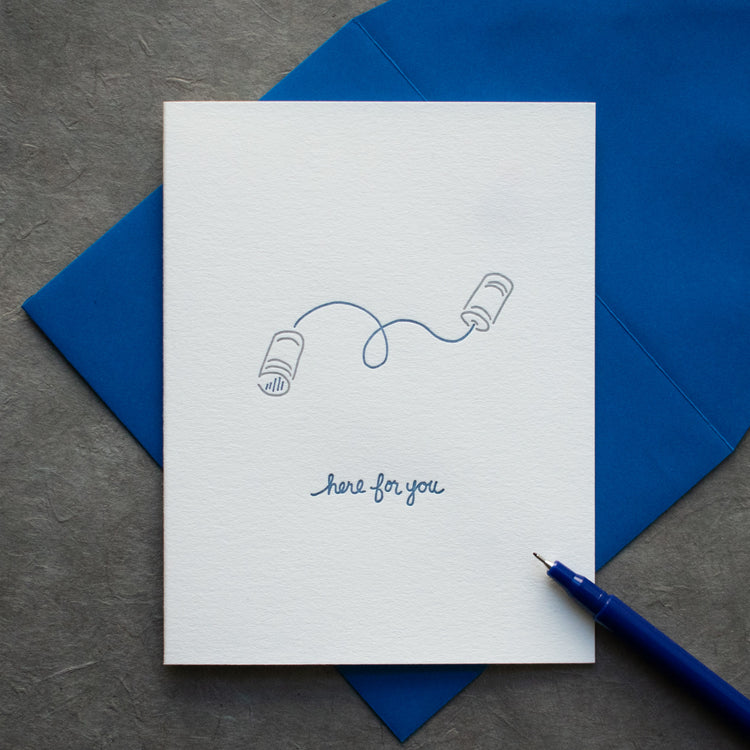 here for you